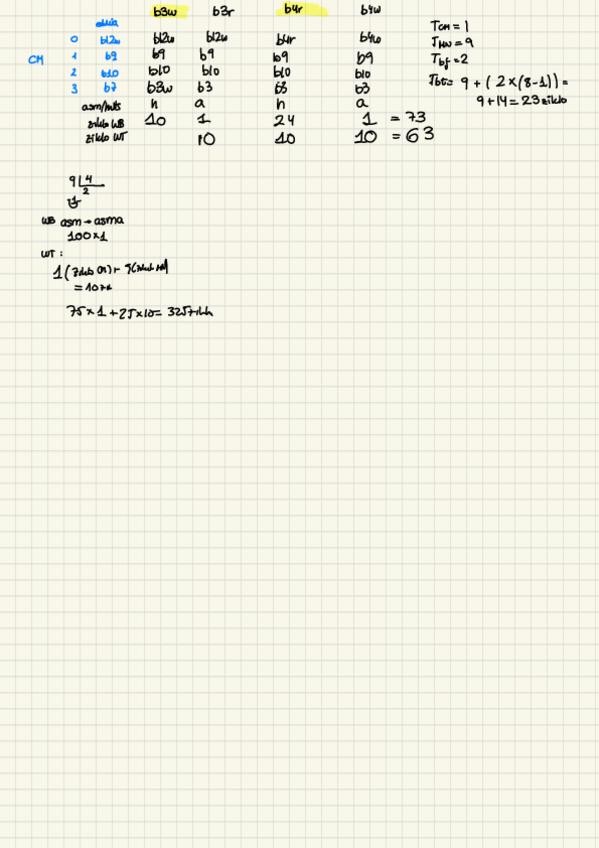 b3w b3r b4r b4w
0 b12w b12w b12w b4r b4w
CM 1 b9 b9 b9 b9 b9
2 b10 b10 b10 b10 b10
3 b7 b3w b3 b3 b3
asm/huts h a h a
ziklo WB 10 1 24 1 = 73
ziklo WT 10 10 10 = 63
TCM = 1
TMN = 9
Tbf = 2
Tbt = 9 + (2×(8-1)) =
9+14 = 23 ziklo
9 4
2
1
WB asm → asma
100×1
WT :
= 10
75×1 + 25×10 = 325